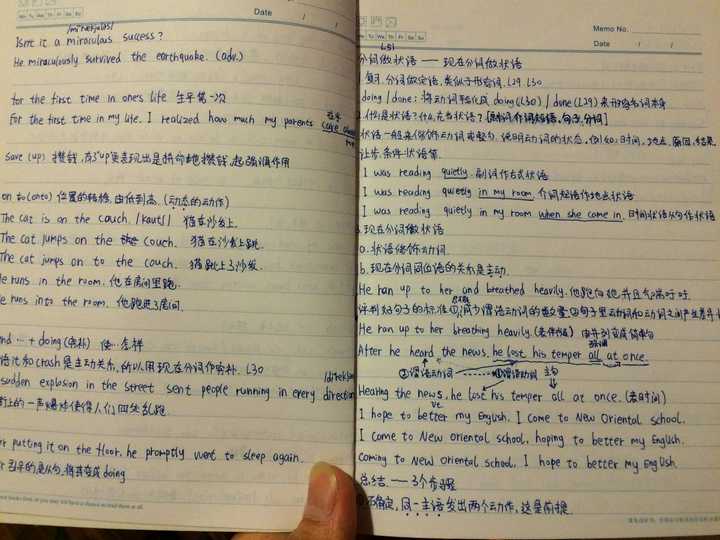 Mo Tu We Th Fr Sa Su
Date / /
/mɪ'rækjələs/
Isn't it a miraculous success?
He miraculously survived the earthquake. (adv.)
for the first time in one's life 生平第一次
For the first time in my life. I realized how much my parents
save (up) 攒钱,有了"up"更表现出是拼命地攒钱,起强调作用
on to(onto) 位置的转换,由低到高.(动态的动作)
The cat is on the couch. /kautʃ/ 猫在沙发上.
The cat jumps on the couch. 猫在沙发上跳.
The cat jumps on to the couch. 猫跳上了沙发.
He runs in the room. 他在房间里跑.
He runs into the room. 他跑进了房间.
+ doing(宾补) 使…怎样
crash是主动关系,所以用现在分词作宾补. L30
sudden explosion in the street sent people running in every direction
街上的一声爆炸使得人们四处乱跑.
putting it on the floor, he promptly went to sleep again.
doing
Memo No.
Mo Tu We Th Fr Sa Su
Date / /
L31
分词做状语 —— 现在分词做状语
1.复习.分词做定语,类似于形容词. L29. L30
doing / done: 将动词转化成 doing(L30) / done (L29) 来形容名词本身
2.什么是状语?什么在当状语?
状语一般来修饰动词或整句,说明动词的状态,例如:时间,地点,原因,结果,
让步,条件状语等.
I was reading quietly. 副词作方式状语
I was reading quietly in my room. 介词短语作地点状语
I was reading quietly in my room when she came in. 时间状语从句作状语
3.现在分词做状语
a.状语修饰动词.
b.现在分词同位语的关系是主动.
He ran up to her and breathed heavily. 他跑向她并且气喘吁吁.
He ran up to her breathing heavily.
After he heard the news, he lost his temper all at once.
②谓语动词 ①谓语动词 主句
Hearing the news, he lost his temper all at once. (表时间)
vt.
I hope to better my English. I come to New Oriental school.
I come to New Oriental school, hoping to better my English.
Coming to New Oriental school, I hope to better my English.
总结 —— 3个步骤
确定,同一主语发出两个动作,这是前提.